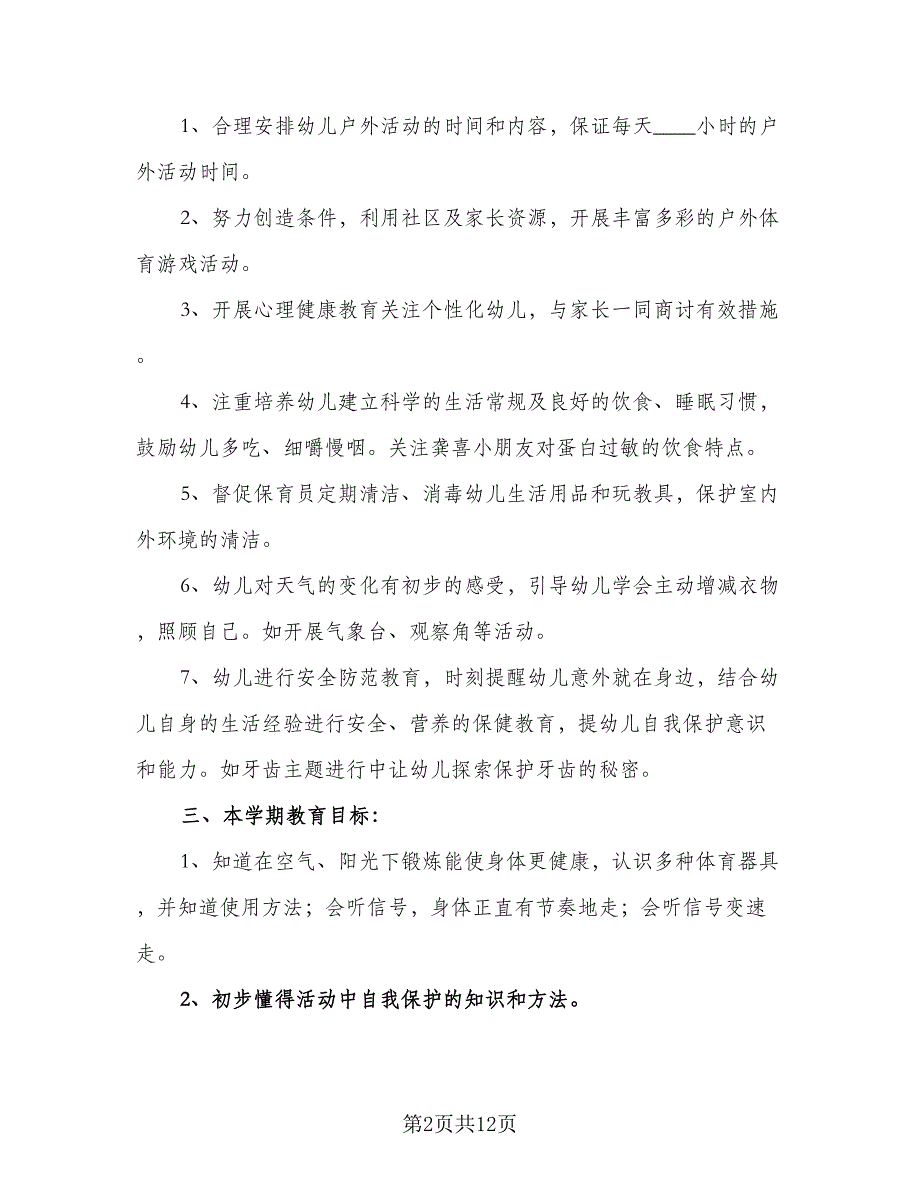 1、合理安排幼儿户外活动的时间和内容，保证每天____小时的户
外活动时间。
2、努力创造条件，利用社区及家长资源，开展丰富多彩的户外体
育游戏活动。
3、开展心理健康教育关注个性化幼儿，与家长一同商讨有效措施
。
4、注重培养幼儿建立科学的生活常规及良好的饮食、睡眠习惯，
鼓励幼儿多吃、细嚼慢咽。关注龚喜小朋友对蛋白过敏的饮食特点。
5、督促保育员定期清洁、消毒幼儿生活用品和玩教具，保护室内
外环境的清洁。
6、幼儿对天气的变化有初步的感受，引导幼儿学会主动增减衣物
，照顾自己。如开展气象台、观察角等活动。
7、幼儿进行安全防范教育，时刻提醒幼儿意外就在身边，结合幼
儿自身的生活经验进行安全、营养的保健教育，提幼儿自我保护意识
和能力。如牙齿主题进行中让幼儿探索保护牙齿的秘密。
三、本学期教育目标：
1、知道在空气、阳光下锻炼能使身体更健康，认识多种体育器具
，并知道使用方法；会听信号，身体正直有节奏地走；会听信号变速
走。
2、初步懂得活动中自我保护的知识和方法。
第2页共12页